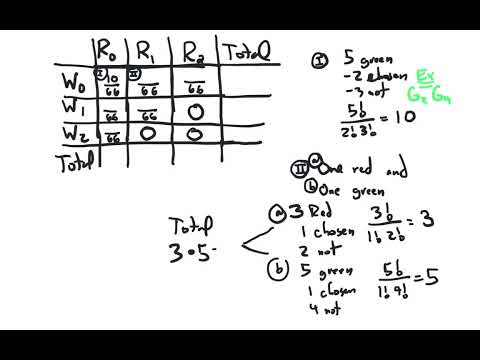 R₀ R₁ R₂ Total
W₀ Ⓘ 10/66 Ⓘⓘ __/66 __/66
W₁ __/66 __/66 0
W₂ __/66 0 0
Total
Ⓘ 5 green
-2 chosen
-3 not
5!/2!3! = 10
Ex
G₂ G₄
Ⓘⓘ ⓐ One red and
ⓑ One green
Total
3•5
ⓐ 3 Red
1 chosen
2 not
3!/1!2! = 3
ⓑ 5 green
1 chosen
4 not
5!/1!4! = 5